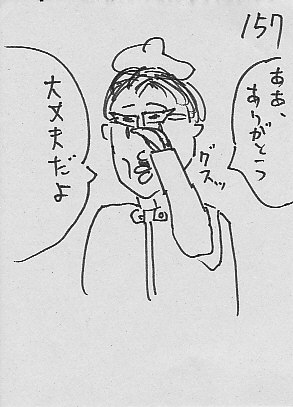 157
ああ、
ありがとう
グスッ
大丈夫だよ